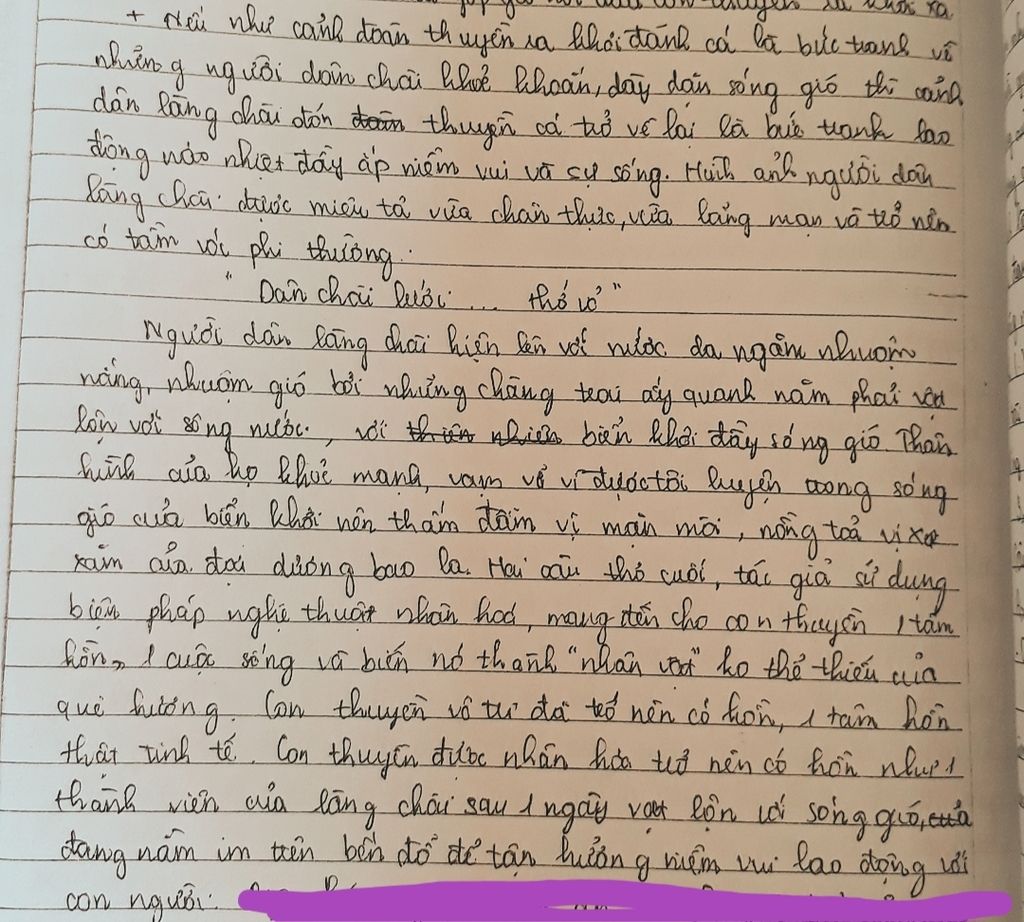 + Nếu như cảnh đoàn thuyền ra khơi đánh cá là bức tranh về
những người dân chài khoẻ khoắn, dày dạn sóng gió thì cảnh
dân làng chài đón đoàn thuyền cá trở về lại là bức tranh lao
động náo nhiệt đầy ắp niềm vui và sự sống. Hình ảnh người dân
làng chài được miêu tả vừa chân thực, vừa lãng mạn và trở nên
có tầm vóc phi thường.
"Dân chài lưới ... thớ vỏ"
Người dân làng chài hiện lên với nước da ngăm nhuộm
nắng, nhuộm gió bởi những chàng trai ấy quanh năm phải vật
lộn với sông nước, với thiên nhiên biển khơi đầy sóng gió. Thân
hình của họ khoẻ mạnh, vạm vỡ vì được tôi luyện trong sóng
gió của biển khơi nên thấm đẫm vị mặn mòi, nồng toả vị xa
xăm của đại dương bao la. Hai câu thơ cuối, tác giả sử dụng
biện pháp nghệ thuật nhân hoá, mang đến cho con thuyền 1 tâm
hồn, 1 cuộc sống và biến nó thành "nhân vật" ko thể thiếu của
quê hương. Con thuyền vô tư đã trở nên có hồn, 1 tâm hồn
thật tinh tế. Con thuyền được nhân hóa trở nên có hồn như 1
thành viên của làng chài sau 1 ngày vật lộn với sóng gió, của
đang nằm im trên bến đỗ để tận hưởng niềm vui lao động với
con người.